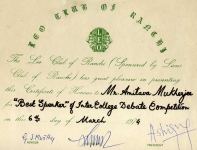 LEO CLUB OF RANCHI
LEO
The Leo Club of Ranchi (Sponsored by Lions
Club of Ranchi) has great pleasure in presenting
this Certificate of Honour to Mr. Amitava Mukherjee
for "Best Speaker" of Inter College Debate Competition
on this 6th day of March 197